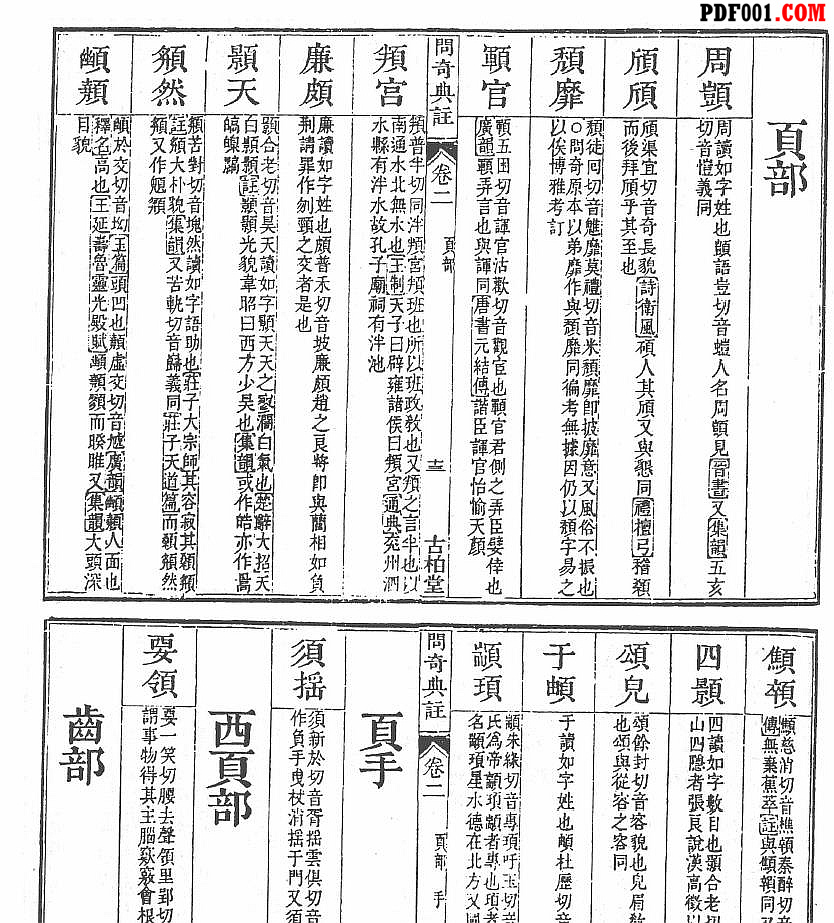 PDF001.COM
頁部
周顗
周讀如字姓也顗語豈切音螘人名周顗見晉書又集韻五亥
切音愷義同
頎頎
頎渠宜切音奇長貌詩衛風碩人其頎又與懇同禮檀弓稽顙
而後拜頎乎其至也
頹靡
頹徒回切音魋靡莫禮切音米頹靡卽披靡意又風俗不振也
○問奇原本以弟靡作與頹靡同徧考無據因仍以頹字易之
以俟博雅考訂
顐官
顐五困切音諢官沽歡切音觀官也顐官君側之弄臣嬖倖也
廣韻顐弄言也與諢同唐書元結傳諧臣諢官怡愉天顏
問奇典註
卷二
頁部
三
古柏堂
頖宮
頖普半切同泮頖宮頖班也所以班政敎也又頖之言半也以
南通水北無水也王制天子曰辟雍諸侯曰頖宮通典兗州泗
水縣有泮水故孔子廟祠有泮池
廉頗
廉讀如字姓也頗普禾切音坡廉頗趙之良將卽與藺相如負
荆請罪作刎頸之交者是也
顥天
顥合老切音昊天讀如字顥天天之
白氣也楚辭大招天
白顥顥註顥顥光貌韋昭曰西方少昊也集韻或作皓亦作暠
䫥然
苦對切音塊然讀如字語助也莊子大宗師其容寂其顙頯
註頯大朴貌集韻又苦軌切音巋義同莊子天道篇而顙頯然
頯又作
䫜顤
於交切音坳玉篇頭凹也
虛交切音
廣韻
人面也
釋名高也王延壽魯靈光殿賦
而睽睢又集韻大頭深
目貌
顦顇
顦慈消切音樵顇秦醉切音
傳無棄蕉萃註與顦顇同又
四顥
四讀如字數目也顥合老切
山四隱者張良說漢高徵以
頌皃
頌餘封切音容貌也皃眉敎
也頌與從容之容同
于頔
于讀如字姓也頔杜歷切音
顓頊
顓朱緣切音專頊吁玉切音
氏爲帝顓頊顓者專也頊者
名顓頊星水德在北方又國
問奇典註
卷二
頁部
手
頁手
須搖
須新於切音胥揺雲俱切音
作負手曳杖消揺于門又須
西頁部
要領
要一笑切腰去聲領里郢切
謂事物得其主腦窾竅會根
齒部